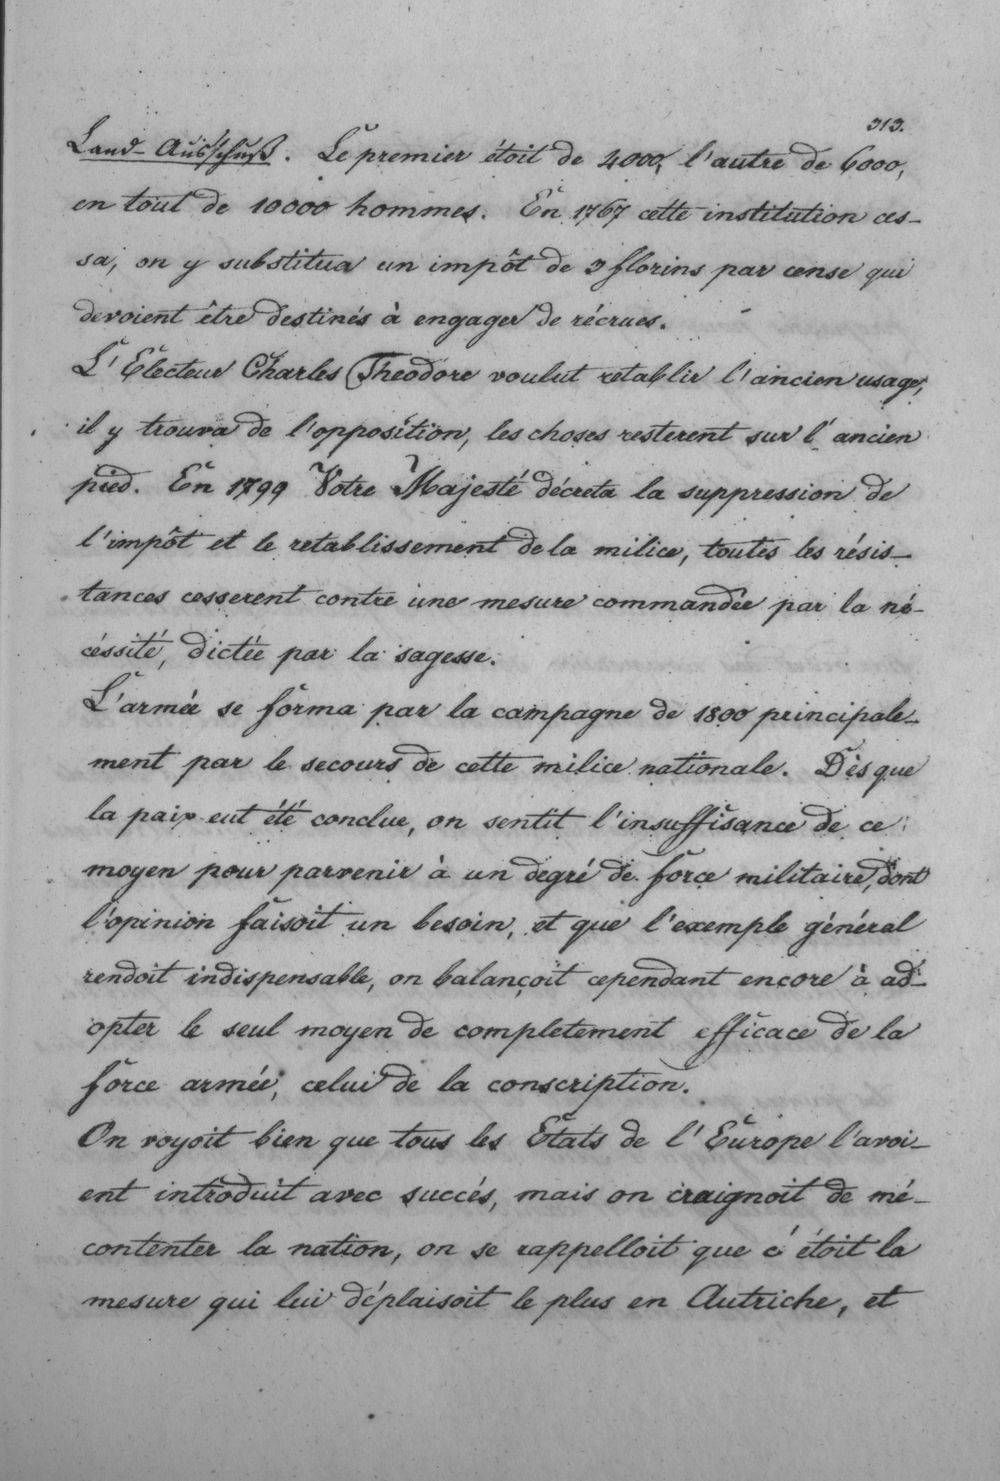 313.
Land-Ausschuß. Le premier étoit de 4000, l'autre de 6000,
en tout de 10000 hommes. En 1767 cette institution ces-
sa, on y substitua un impôt de 3 florins par cense qui
devoient être destinés à engager de récrues.
L'Electeur Charles Theodore voulut retablir l'ancien usage,
il y trouva de l'opposition, les choses resterent sur l'ancien
pied. En 1799 Votre Majesté décreta la suppression de
l'impôt et le retablissement de la milice, toutes les résis-
tances cesserent contre une mesure commandée par la né-
céssité, dictée par la sagesse.
L'armée se forma par la campagne de 1800 principale-
ment par le secours de cette milice nationale. Dès que
la paix eut été conclue, on sentit l'insuffisance de ce
moyen pour parvenir à un degré de force militaire, dont
l'opinion faisoit un besoin, et que l'exemple général
rendoit indispensable, on balançoit cependant encore à ad-
opter le seul moyen de completement efficace de la
force armée, celui de la conscription.
On voyoit bien que tous les Etats de l'Europe l'avoi-
ent introduit avec succés, mais on craignoit de mé-
contenter la nation, on se rappelloit que c'étoit la
mesure qui lui déplaisoit le plus en Autriche, et